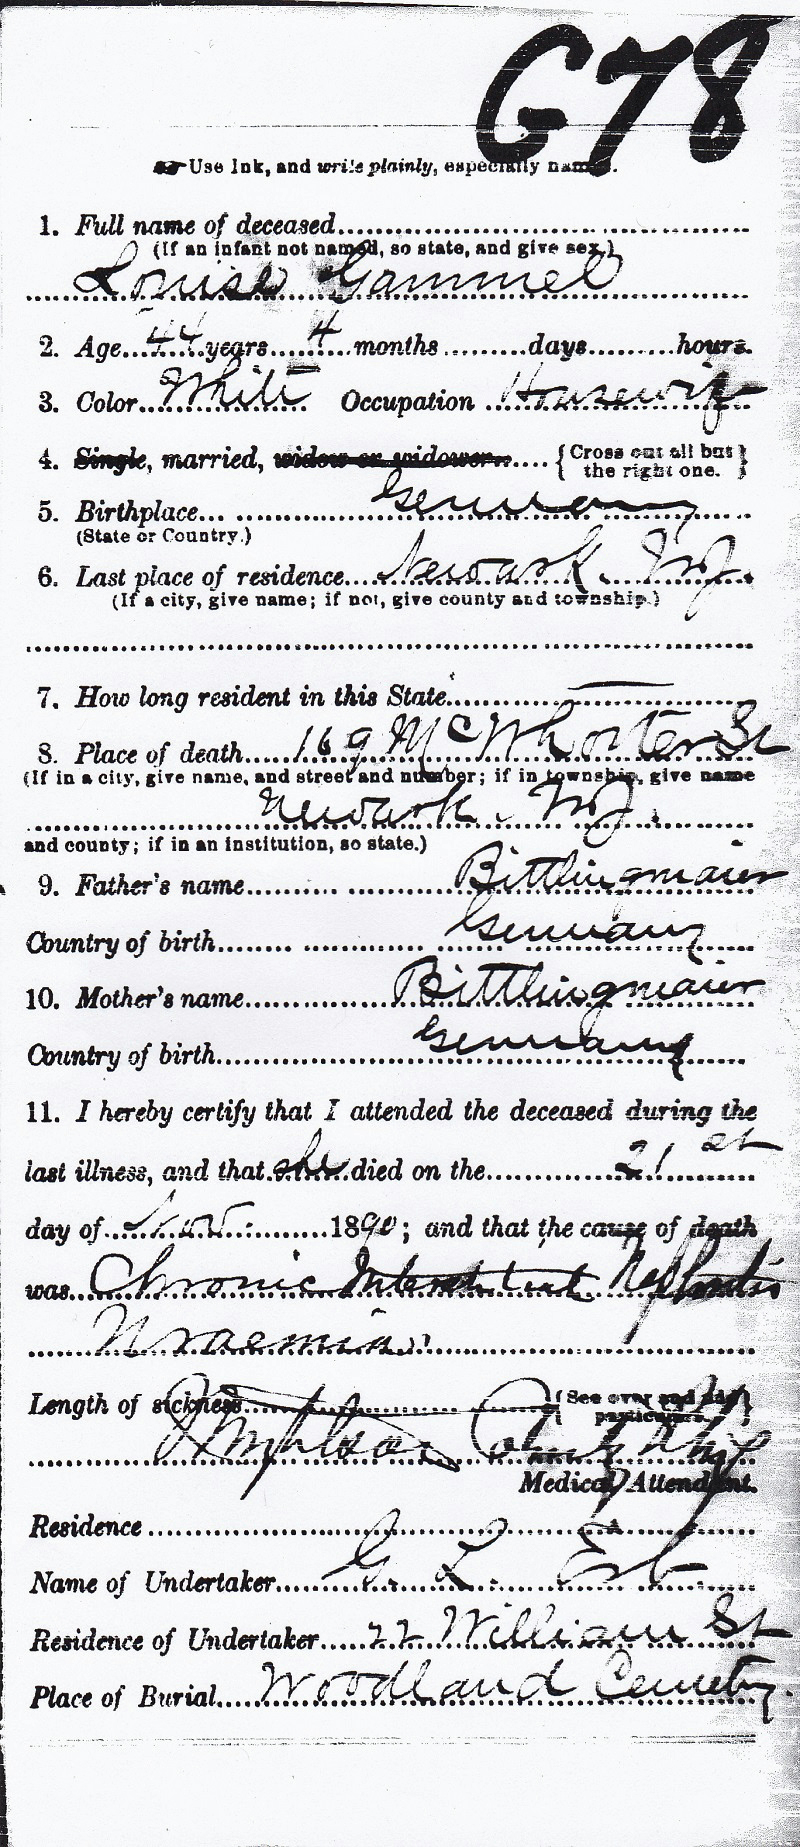 G78
Use Ink, and write plainly, especially names.
1. Full name of deceased
(If an infant not named, so state, and give sex.)
Louise Gammel
2. Age 44 years 4 months days hours.
3. Color White Occupation Housewife
4. Single, married, widow or widower. {Cross out all but the right one.}
5. Birthplace Germany
(State or Country.)
6. Last place of residence Newark. N.J.
(If a city, give name; if not, give county and township.)
7. How long resident in this State —
8. Place of death 169 McWhorter St
(If in a city, give name, and street and number; if in township, give name
Newark. N.J.
and county; if in an institution, so state.)
9. Father's name Bittlingmaier
Country of birth Germany
10. Mother's name Bittlingmaier
Country of birth Germany
11. I hereby certify that I attended the deceased during the
last illness, and that she died on the 21st
day of Nov. 1890; and that the cause of death
was Chronic Interstitial Nephritis
Uraemia
Length of sickness {See over and add particulars.}
Medical Attendant.
Residence
Name of Undertaker G. L. Erb
Residence of Undertaker 22 William St
Place of Burial Woodland Cemetry.